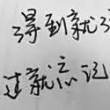 得到就
过就忘记